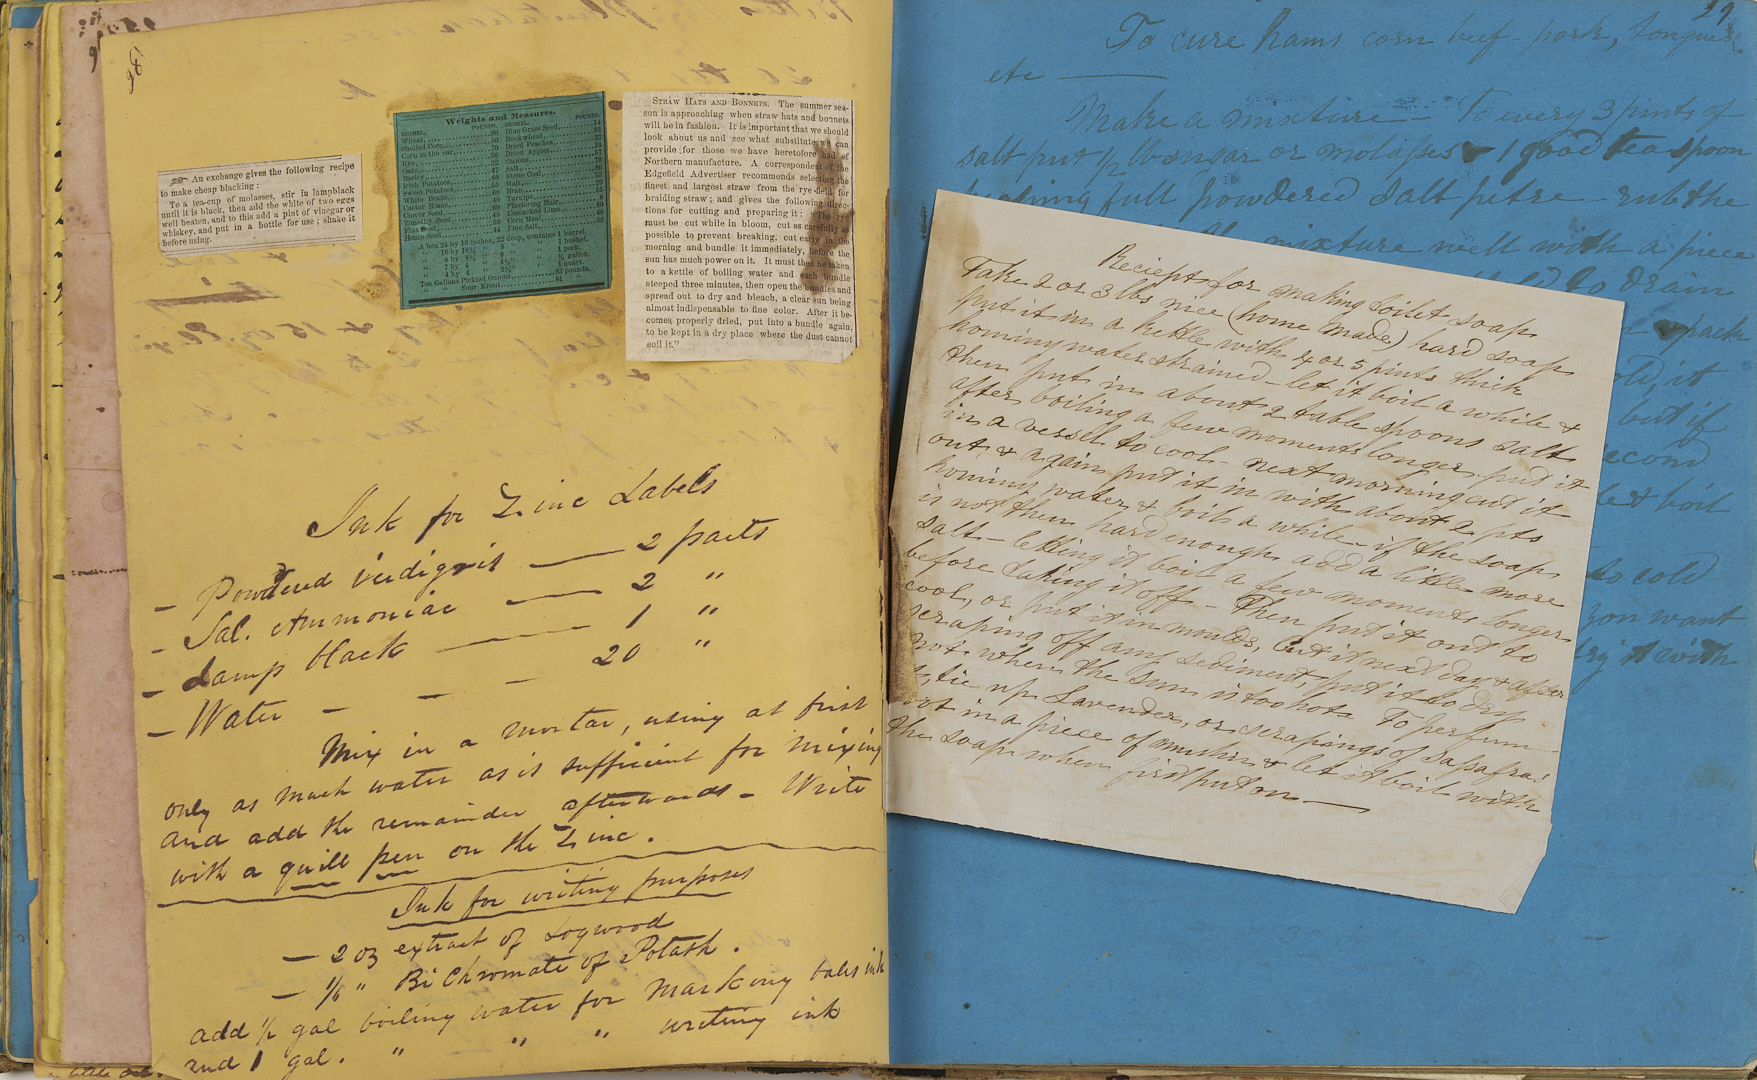 An exchange gives the following recipe
to make cheap blacking:
To a tea-cup of molasses, stir in lampblack
until it is black, then add the white of two eggs
well beaten, and to this add a pint of vinegar or
whiskey, and put in a bottle for use; shake it
before using.
Weights and Measures.
BUSHEL. POUNDS. BUSHEL. POUNDS.
Wheat, 60 Blue Grass Seed, 14
Shelled Corn, 56 Buckwheat, 52
Corn in the ear, 70 Dried Peaches, 33
Rye, 56 Dried Apples, 24
Oats, Onions,
Barley, 47 Salt,
Irish Potatoes, Stone Coal,
Sweet Potatoes, 55 Malt,
White Beans, 60 Bran, 20
Castor Beans, Turnips,
Clover Seed, 60 Plastering Hair,
Timothy Seed, 45 Unslacked Lime,
Flax Seed, 56 Corn Meal,
Hemp Seed, 44 Fine Salt,
A box 24 by 16 inches, 22 deep, contains 1 barrel.
" 16 by 16¾ " 8 " " 1 bushel.
" 8 by 8¾ " 8 " " 1 peck.
" 7 by 4 " " " ½ gallon.
" 4 by 4 " " " 1 quart.
Ten Gallons Pickled Onions 83 pounds.
" " Sour Krout 81 "
STRAW HATS AND BONNETS. The summer sea-
son is approaching when straw hats and bonnets
will be in fashion. It is important that we should
look about us and see what substitute we can
provide for those we have heretofore had of
Northern manufacture. A correspondent of the
Edgefield Advertiser recommends selecting the
finest and largest straw from the rye-field, for
braiding straw; and gives the following direc-
tions for cutting and preparing it: "The rye
must be cut while in bloom, cut as carefully as
possible to prevent breaking, cut early in the
morning and bundle it immediately, before the
sun has much power on it. It must then be taken
to a kettle of boiling water and each bundle
steeped three minutes, then open the bundles and
spread out to dry and bleach, a clear sun being
almost indispensable to fine color. After it be-
comes properly dried, put into a bundle again,
to be kept in a dry place where the dust cannot
soil it."
Ink for Zinc Labels
— Powdered verdigris — 2 parts
— Sal. Ammoniac — 2 "
— Lamp black — 1 "
— Water — — — 20 "
Mix in a mortar, using at first
only as much water as is sufficient for mixing
and add the remainder afterwards – Write
with a quill pen on the Zinc.
Ink for writing purposes
— 2 oz extract of Logwood
— " Bi Chromate of Potash.
add ½ gal boiling water for marking bales ink
and 1 gal. " " " writing ink
29
To cure hams corn beef - pork, tongues
etc —
Make a mixture – To every 3 pints of
salt put ½ lb sugar or molasses – 1 good tea spoon
heaping full powdered salt petre – rub the
the mixture well with a piece
to drain
pack
old, it
but if
second
& boil
to cold
you want
dry it with
Reciept for making toilet soap
Take 2 or 3 lbs nice (home made) hard soap
put it in a kettle with 4 or 5 pints thick
hominy water strained – let it boil a while &
then put in about 2 table spoons salt
after boiling a few moments longer put it
in a vessel to cool – next morning cut it
out & again put it in with about 2 pts
hominy water & boil a while – if the soap
is not then hard enough add a little more
salt – letting it boil a few moments longer
before taking it off – Then put it out to
cool, or put it in moulds, Cut it next day & after
scraping off any sediment, put it to dry
not where the sun is too hot. To perfum–
tie up Lavender, or scrapings of Sassafras
root in a piece of muslin & let it boil with
the soap when first put on —